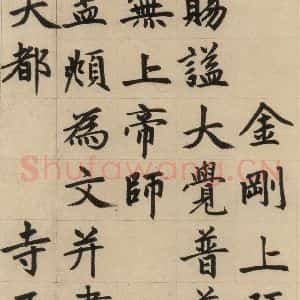 金剛上
賜謚大覺普
無上帝師
孟頫為文并書
大都 寺
Shufawang.CN